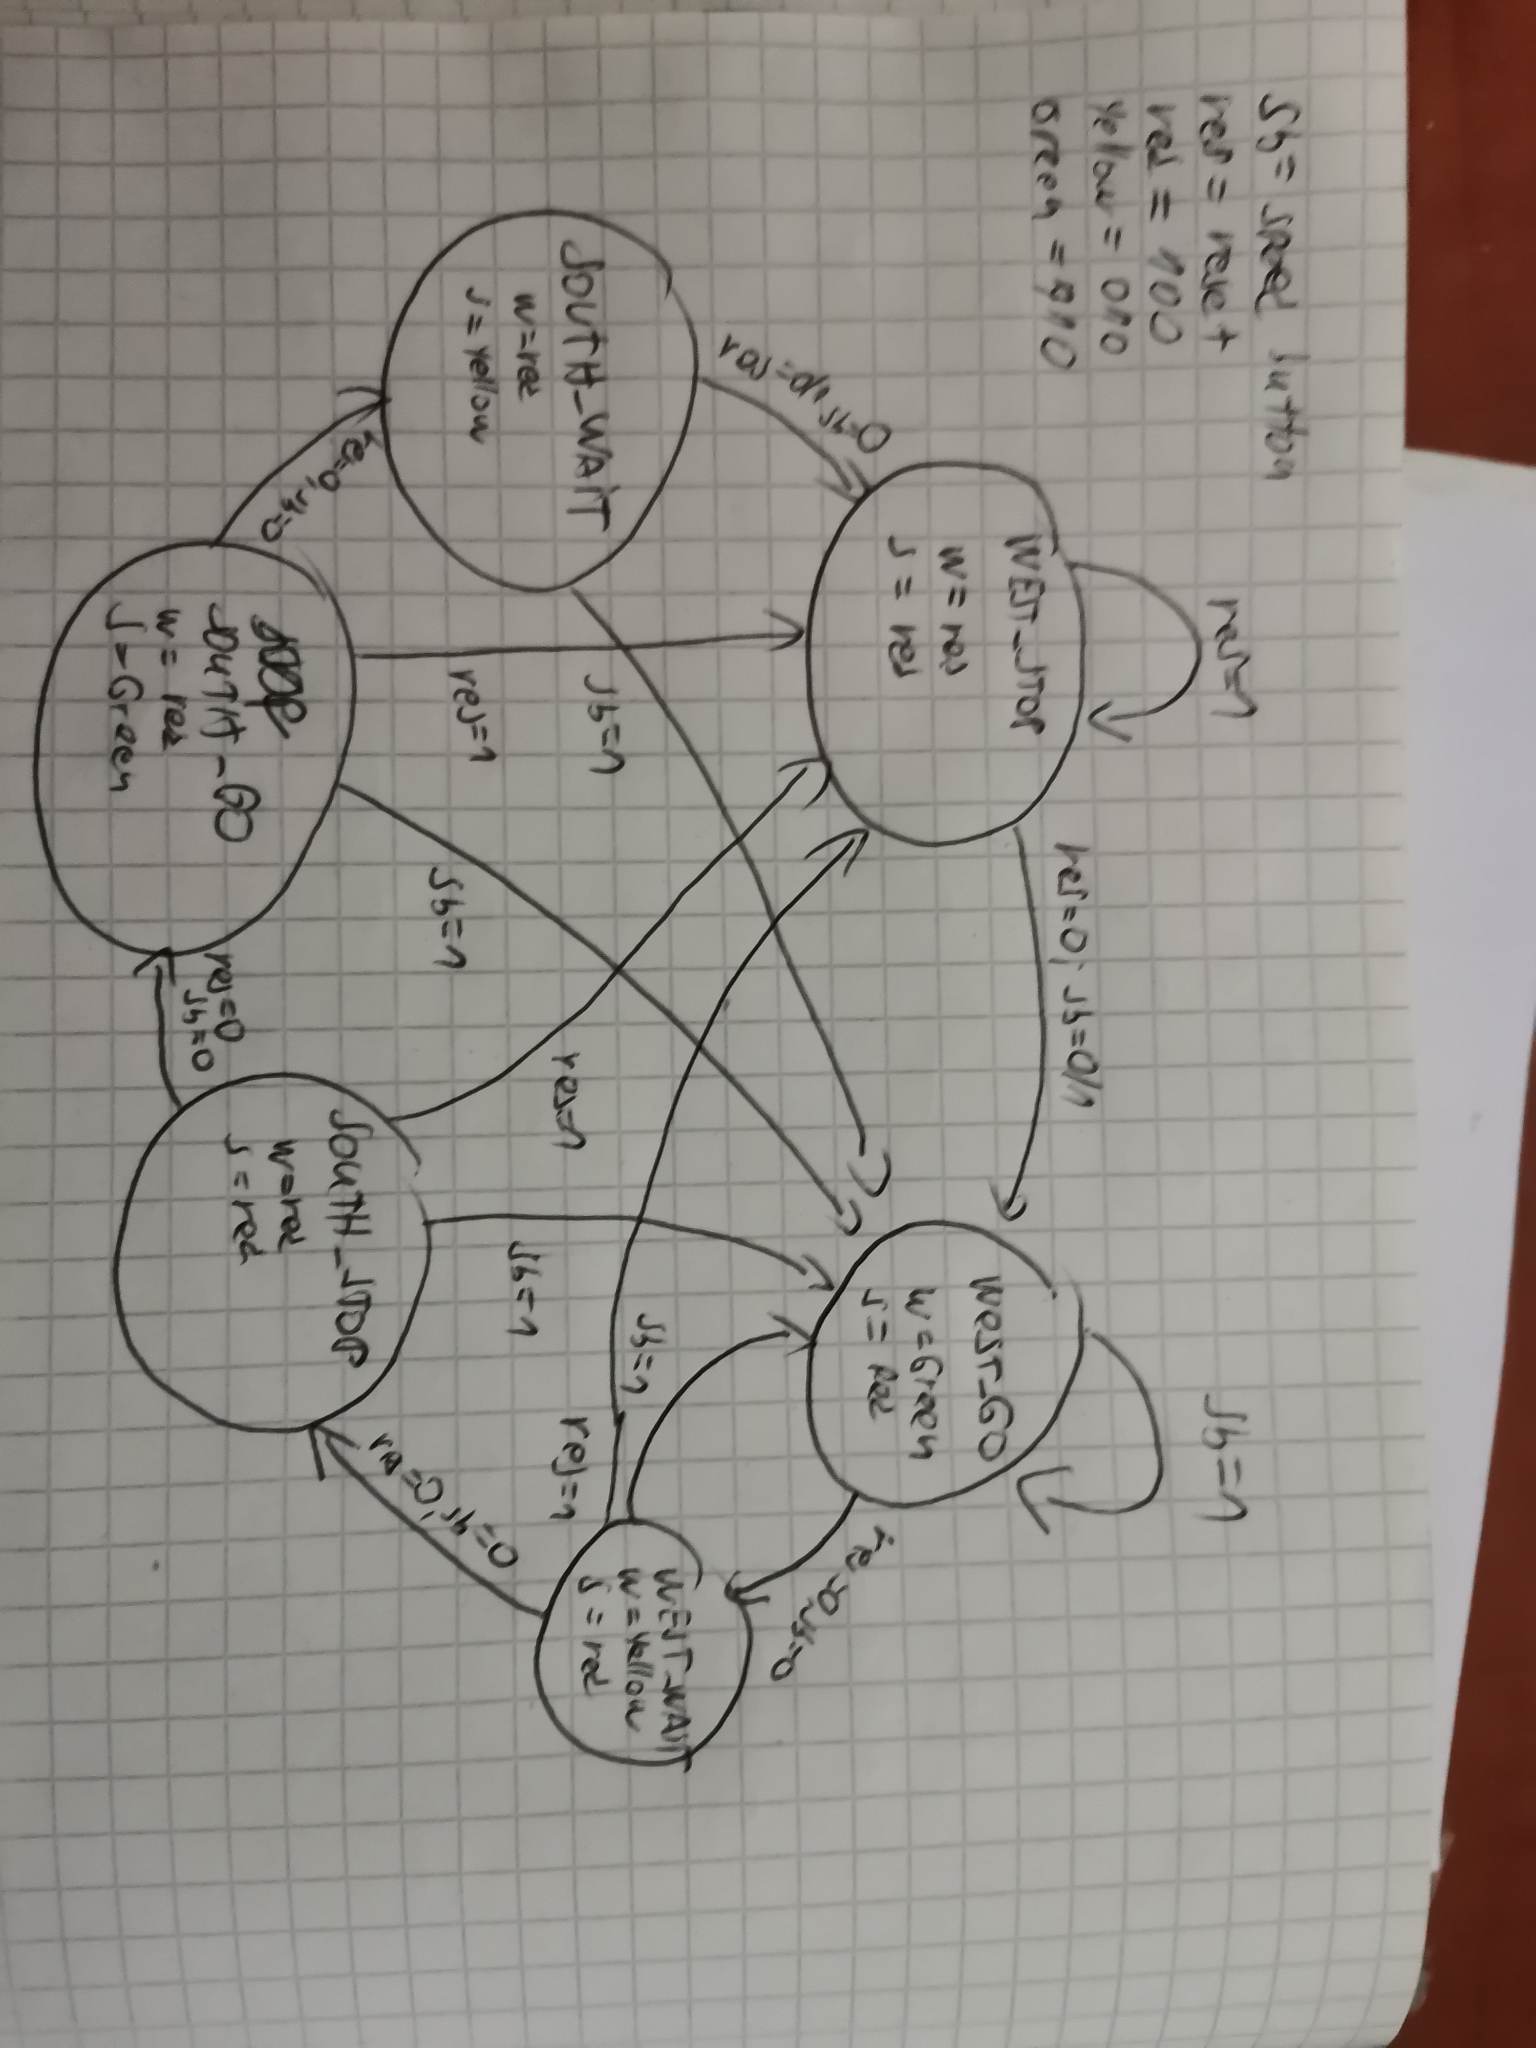 sb = speed button
res = reset
red = 100
yellow = 010
Green = 110
res=1
sb=1
res=0; sb=0/1
WEST_STOP
w = res
s = res
WEST_GO
w = Green
s = Red
res=0, sb=0
res=0/1, sb=0
WEST_WAIT
w = yellow
s = red
sb=1
res=1
SOUTH_WAIT
w = red
s = yellow
sb=1
res=1
sb=1
res=1
sb=1
res=0; sb=0
res=0; sb=0
SOUTH_STOP
w = red
s = red
SOUTH_GO
w = red
s = Green
res=0
sb=0